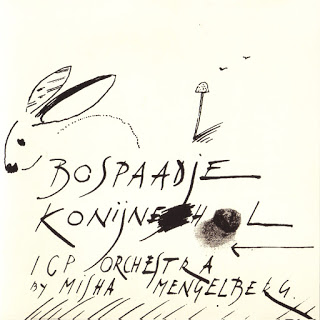 BOSPAADJE
KONIJNEHOL
ICP ORCHESTRA
BY MISHA MENGELBERG.